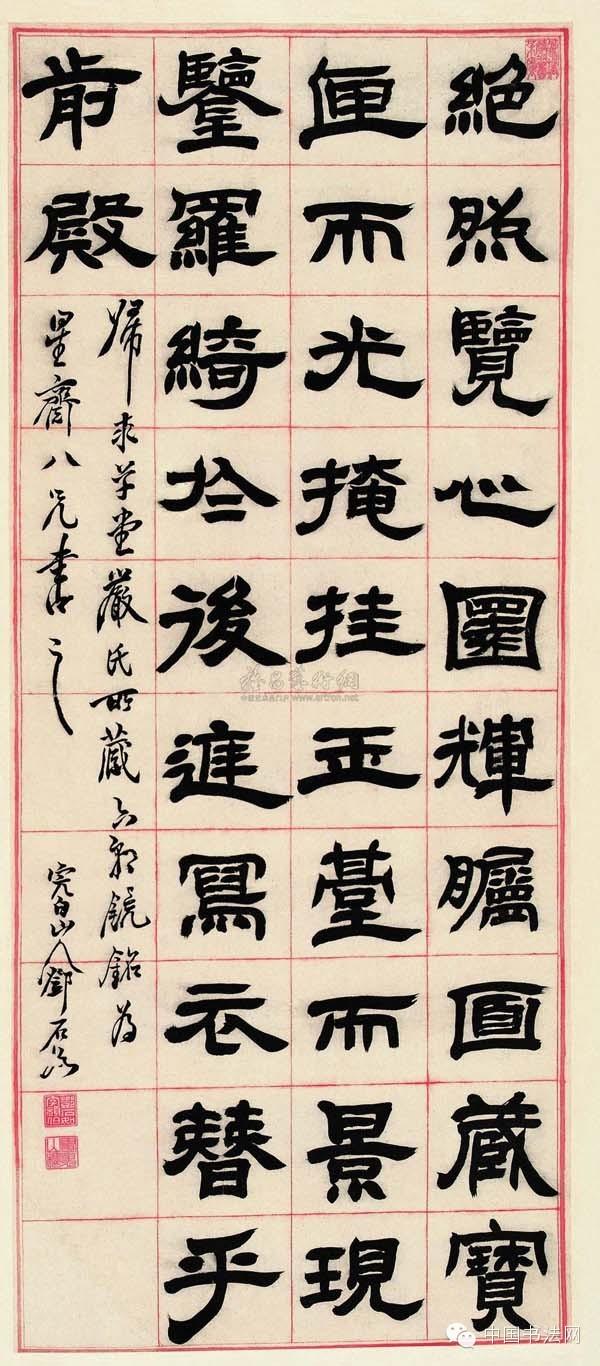 絶照覽心圎輝矚面藏寶
匣而光掩挂玉臺而景現
鑒羅綺於後進寫衣簪乎
前殿
歸求草堂嚴氏所藏六朝鏡銘為
星齋八兄書之
完白山人鄧石如
www.artron.net
中国书法网